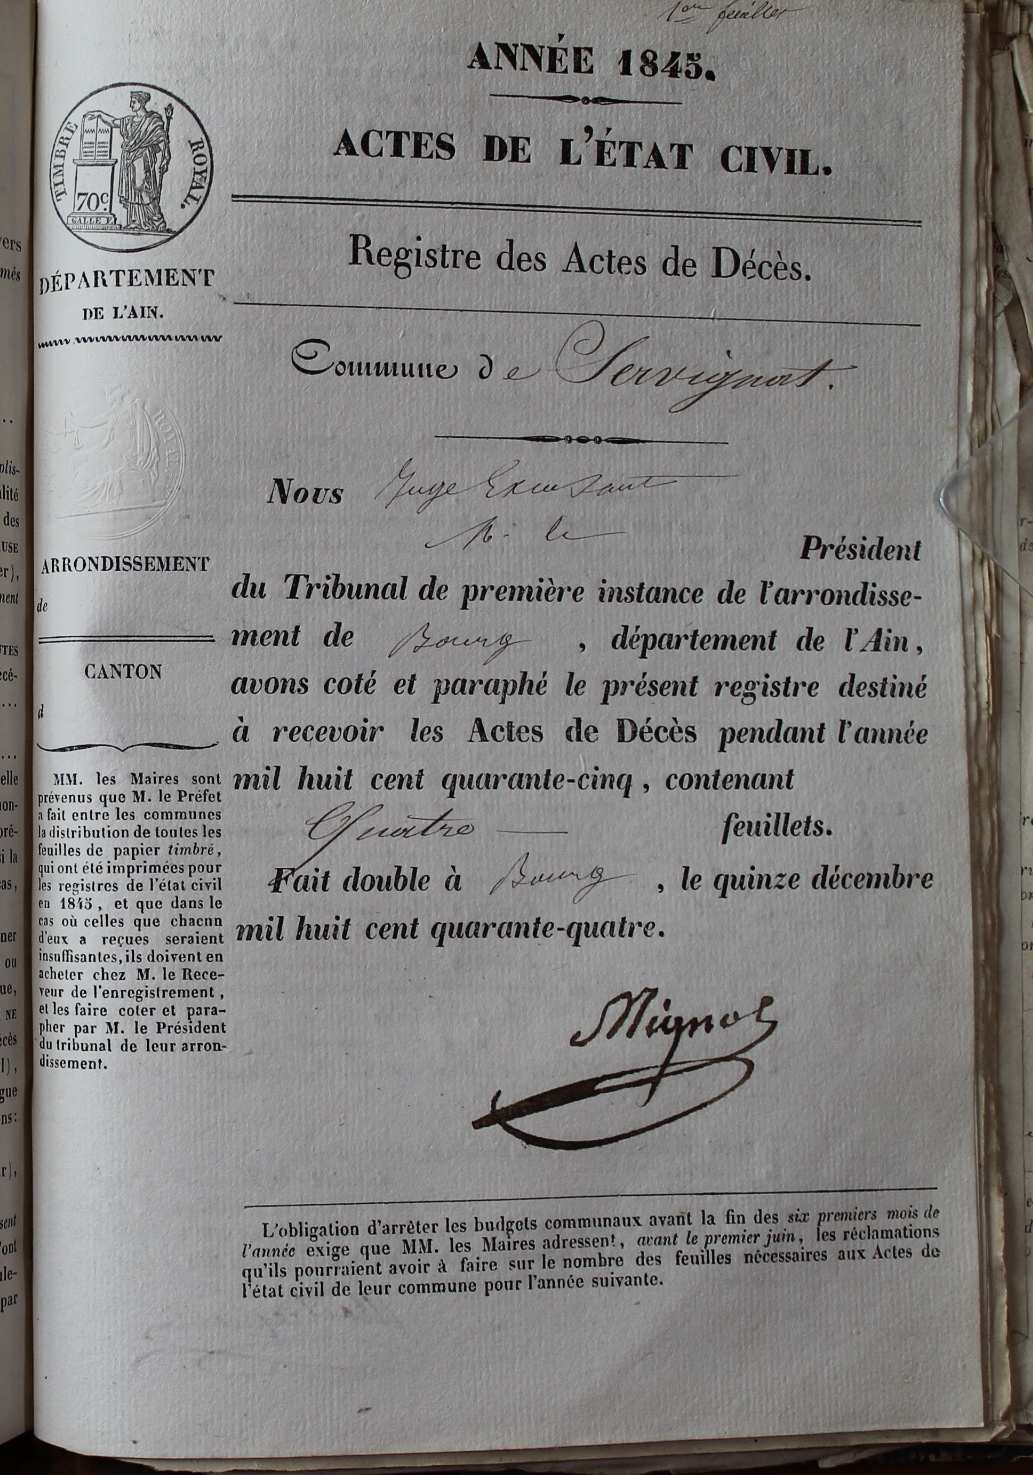 1er feuillet
ANNÉE 1845.
ACTES DE L'ÉTAT CIVIL.
TIMBRE ROYAL.
70c.
Registre des Actes de Décès.
DÉPARTEMENT
DE L'AIN.
Commune de Servignat.
Nous Juge
Président
du Tribunal de première instance de l'arrondisse-
ment de Bourg, département de l'Ain,
avons coté et paraphé le présent registre destiné
à recevoir les Actes de Décès pendant l'année
mil huit cent quarante-cinq, contenant
Quatre feuillets.
Fait double à Bourg, le quinze décembre
mil huit cent quarante-quatre.
Mignot
ARRONDISSEMENT
de
CANTON
d
MM. les Maires sont
prévenus que M. le Préfet
a fait entre les communes
la distribution de toutes les
feuilles de papier timbré,
qui ont été imprimées pour
les registres de l'état civil
en 1845, et que dans le
cas où celles que chacnn
d'eux a reçues seraient
insuffisantes, ils doivent en
acheter chez M. le Rece-
veur de l'enregistrement,
et les faire coter et para-
pher par M. le Président
du tribunal de leur arron-
dissement.
L'obligation d'arrêter les budgets communaux avant la fin des six premiers mois de
l'année exige que MM. les Maires adressent, avant le premier juin, les réclamations
qu'ils pourraient avoir à faire sur le nombre des feuilles nécessaires aux Actes de
l'état civil de leur commune pour l'année suivante.